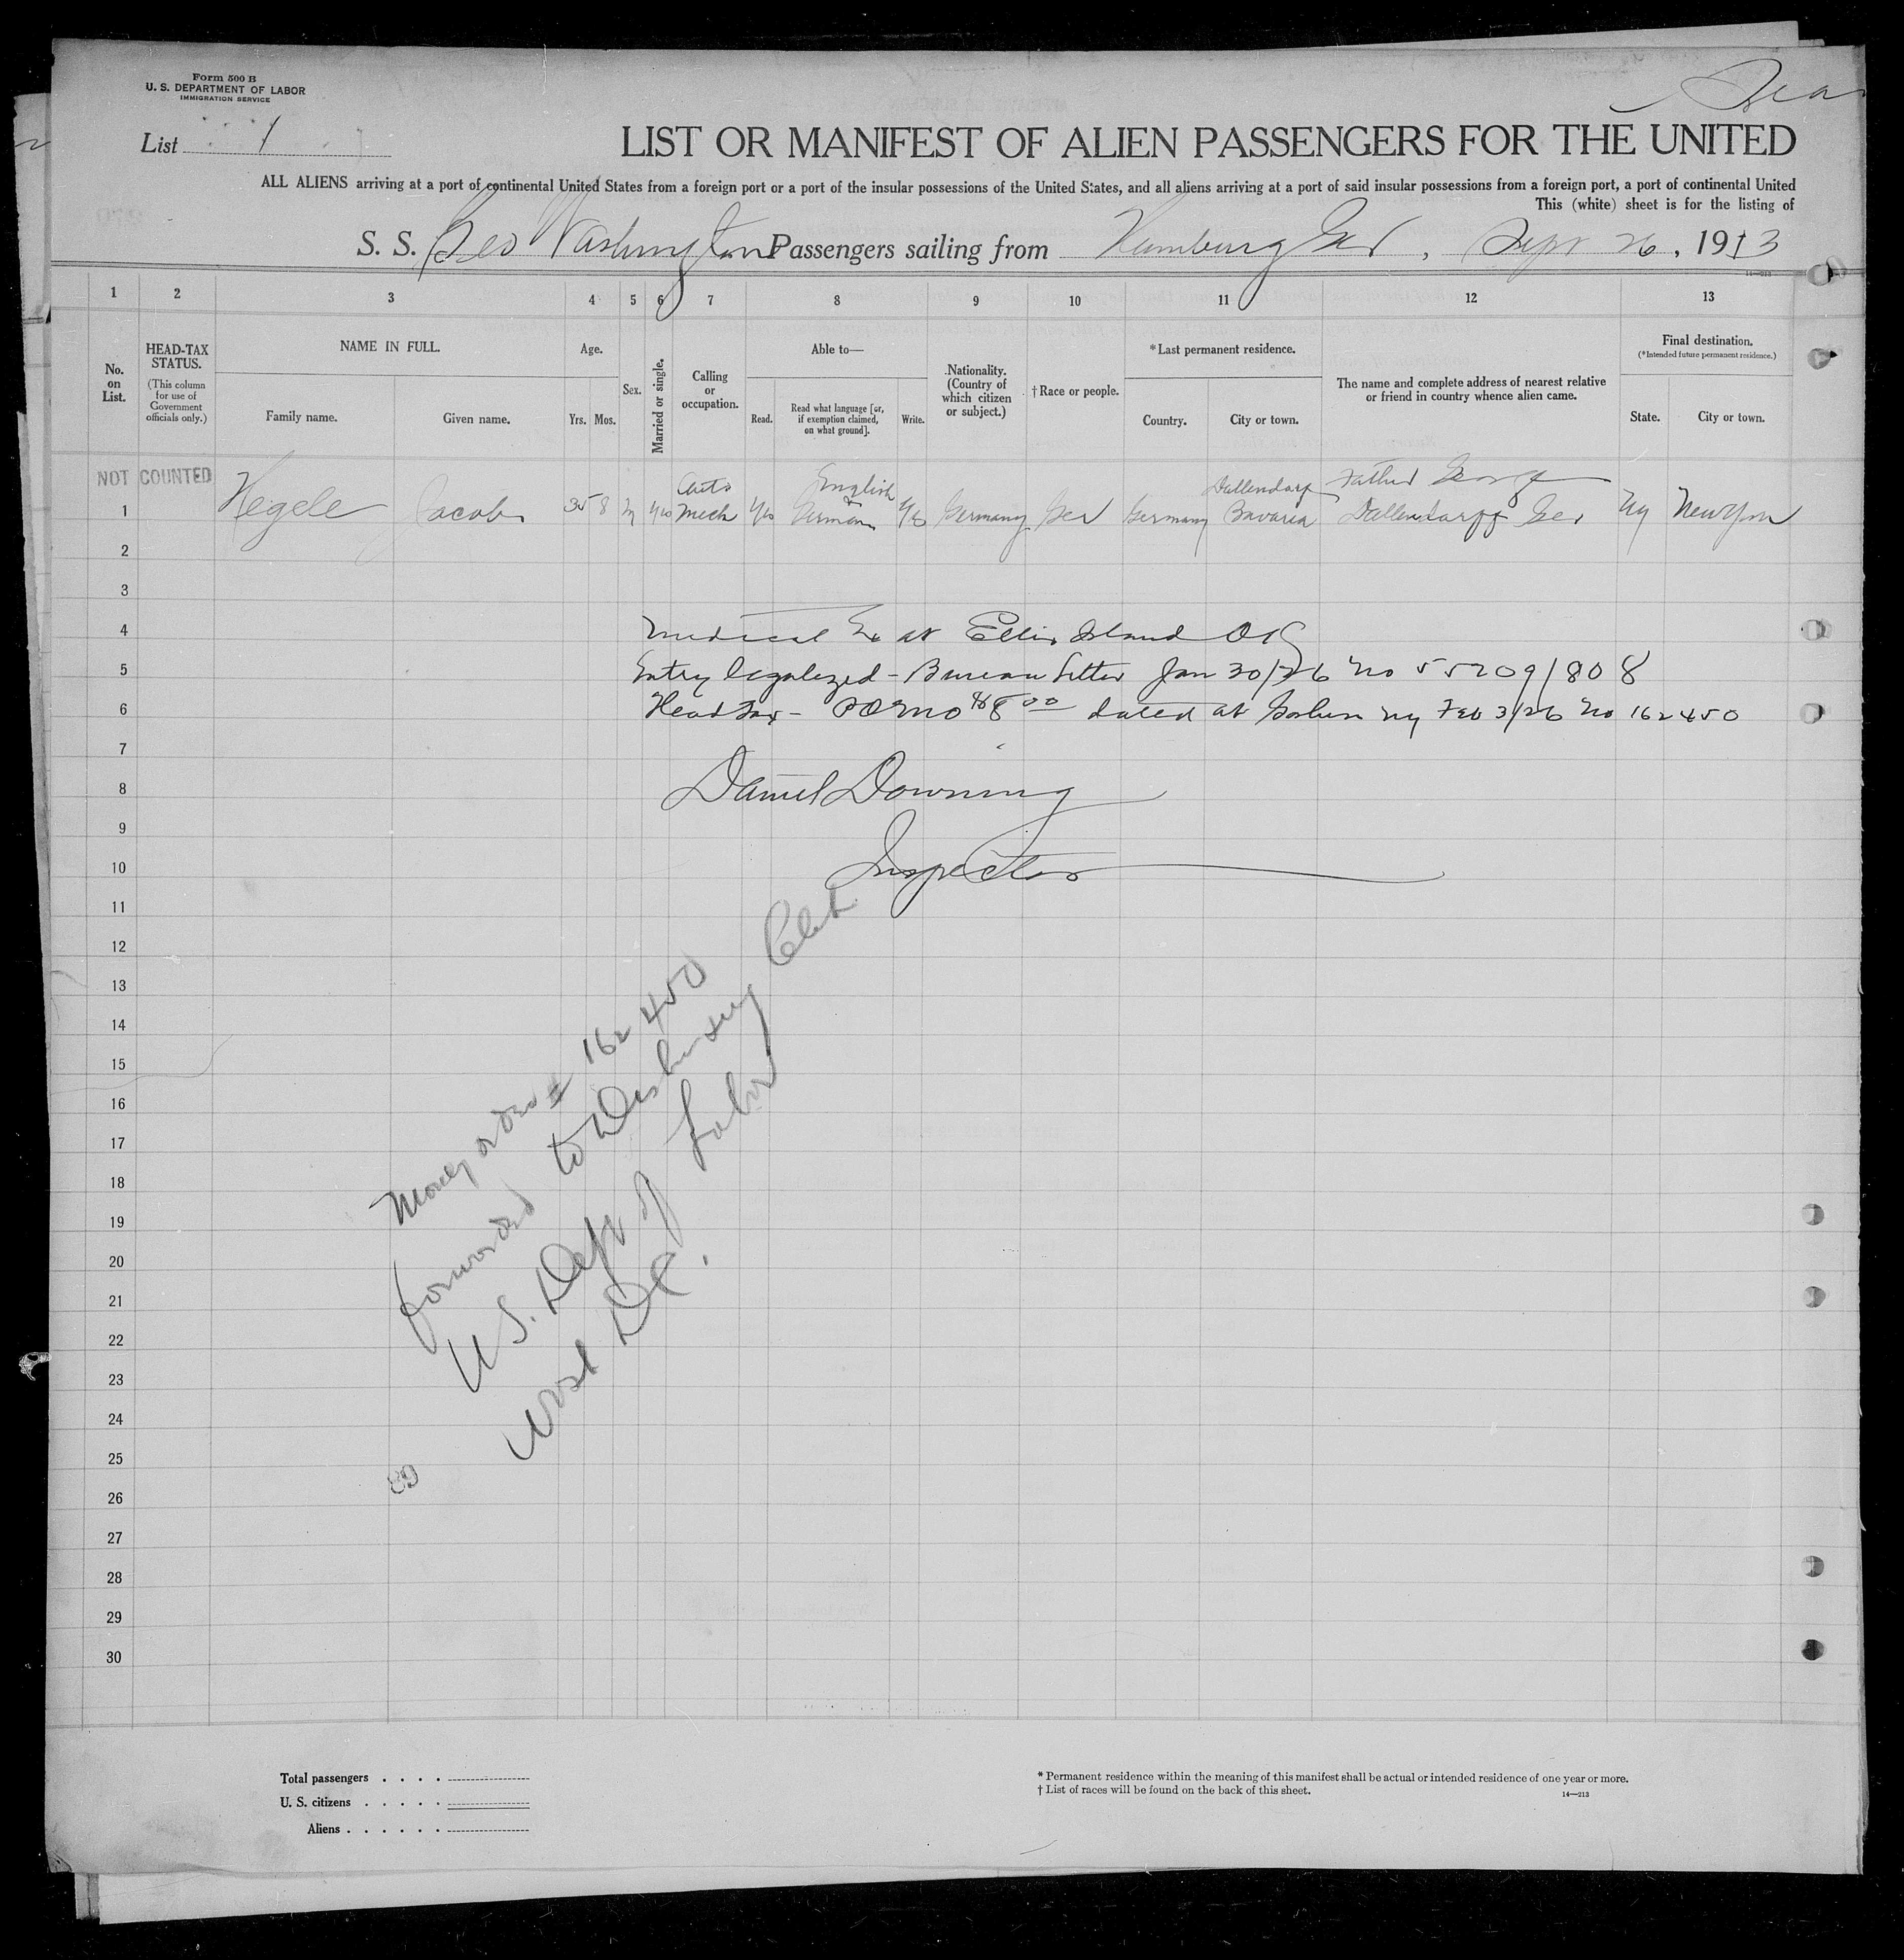 Form 500 B
U. S. DEPARTMENT OF LABOR
IMMIGRATION SERVICE
List 1
LIST OR MANIFEST OF ALIEN PASSENGERS FOR THE UNITED
ALL ALIENS arriving at a port of continental United States from a foreign port or a port of the insular possessions of the United States, and all aliens arriving at a port of said insular possessions from a foreign port, a port of continental United
This (white) sheet is for the listing of
S. S. Geo Washington Passengers sailing from Hamburg Ger, Sept 26, 1913
14—213
1 2 3 4 5 6 7 8 9 10 11 12 13
No. on List.
HEAD-TAX STATUS.
(This column for use of Government officials only.)
NAME IN FULL.
Family name. Given name.
Age.
Yrs. Mos.
Sex.
Married or single.
Calling or occupation.
Able to—
Read. Read what language [or, if exemption claimed, on what ground]. Write.
Nationality. (Country of which citizen or subject.)
† Race or people.
* Last permanent residence.
Country. City or town.
The name and complete address of nearest relative or friend in country whence alien came.
Final destination.
(* Intended future permanent residence.)
State. City or town.
NOT COUNTED
1 Hegele Jacob 35 8 M yes Auto Mech yes English & German yes Germany Ger Germany Dallendorf Bavaria Father George Dallendorff Ger NY New York
2
3
4 Medical Ex at Ellis Island OK
5 Entry legalized - Bureau Letter Jan 30/26 No 55209/808
6 Head Tax - POMO #8 00 dated at Goshen NY Feb 3/26 No 162450
7
8 Daniel Downing
9
10 Inspector
11
12
13
14
15
16
17
18
19
20
21
22
23
24
25
26
27
28
29
30
Money order # 162450
forwarded to Disbursing Clerk
U S. Dept of Labor
Wash DC.
Total passengers . . . .
U. S. citizens . . . . .
Aliens . . . . . .
* Permanent residence within the meaning of this manifest shall be actual or intended residence of one year or more.
† List of races will be found on the back of this sheet.
14—213